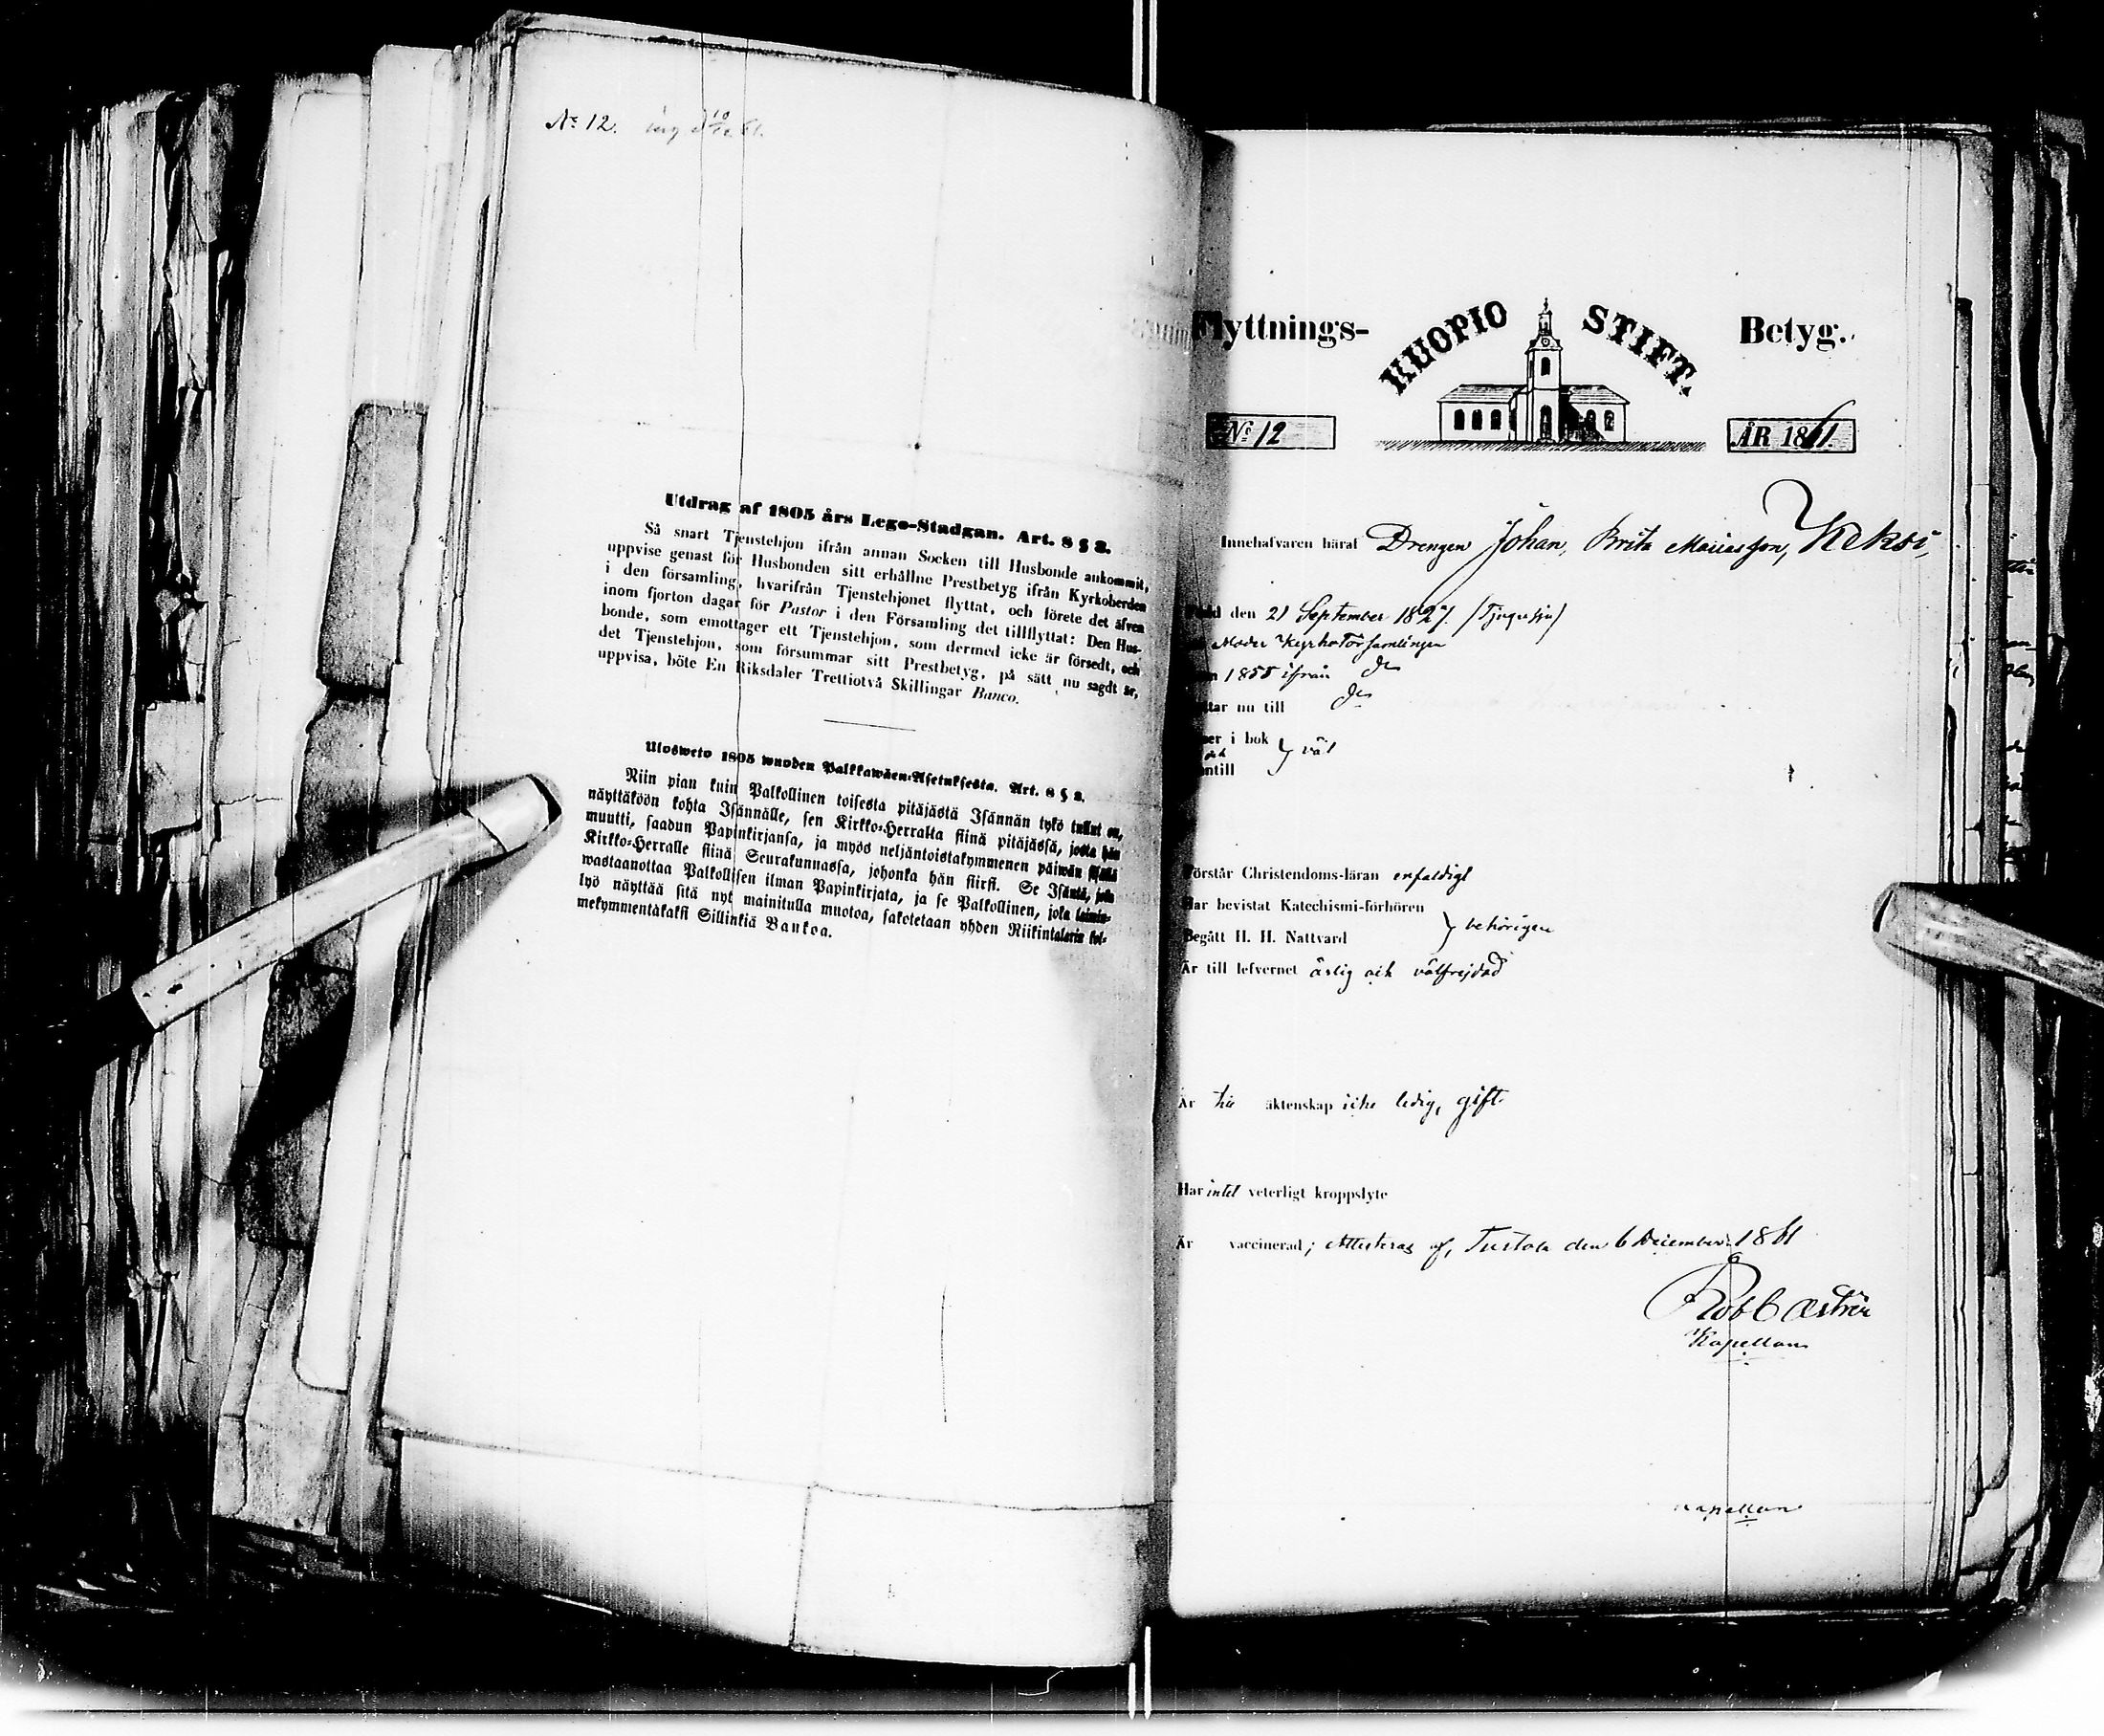 No 12. ing d 10/12 61.
Utdrag af 1805 års Lego-Stadgan. Art. 8 § 3.
Så snart Tjenstehjon ifrån annan Socken till Husbonde ankommit,
uppvise genast för Husbonden sitt erhållne Prestbetyg ifrån Kyrkoherden
i den församling, hvarifrån Tjenstehjonet flyttat, och förete det äfven
inom fjorton dagar för Pastor i den Församling det tillflyttat: Den Hus-
bonde, som emottager ett Tjenstehjon, som dermed icke är försedt, och
det Tjenstehjon, som försummar sitt Prestbetyg, på sätt nu sagdt är,
uppvisa, böte En Riksdaler Trettiotvå Skillingar Banco.
Ulosweto 1805 wuoden Palkkawäen-Asetuksesta. Art. 8 §
Niin pian kuin Palkollinen toisesta pitäjästä Isännän tykö tullut on,
näyttäköön kohta Isännälle, sen Kirkko-Herralta siinä pitäjässä, josta hän
muutti, saadun Papinkirjansa, ja myös neljäntoistakymmenen päiwän sisällä
Kirkko-Herralle siinä Seurakunnassa, johonka hän siirsi. Se Isäntä, joka
wastaanottaa Palkollisen ilman Papinkirjata, ja se Palkollinen, joka laimin-
lyö näyttää sitä nyt mainitulla muotoa, sakotetaan yhden Riikintalarin kol-
mekymmentäkaksi Sillinkiä Bankoa.
Flyttnings- KUOPIO STIFT. Betyg.
No 12 ÅR 1861.
Innehafvaren häraf Drengen Johan, Brita Mariasson, Keksi,
Född den 21 September 1827. (Tjugusju)
Moder Kyrkoförsamlingen
1855 ifrån do
Flyttar nu till do
i bok
och } väl
Förstår Christendoms-läran enfaldigt
Har bevistat Katechismi-förhören
} behörigen
Begått H. H. Nattvard
Är till lefvernet ärlig och välfrejdad
Är till äktenskap icke ledig, gift.
Har intet veterligt kroppslyte
Är vaccinerad; Attesteras af, Turtola den 6 December 1861
Rob Castrén
Kapellan
Kapellan